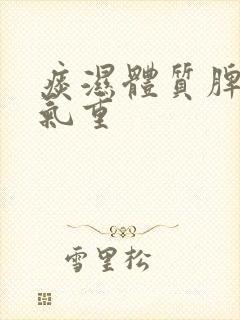 痰濕體質脾
氣重
雪里松